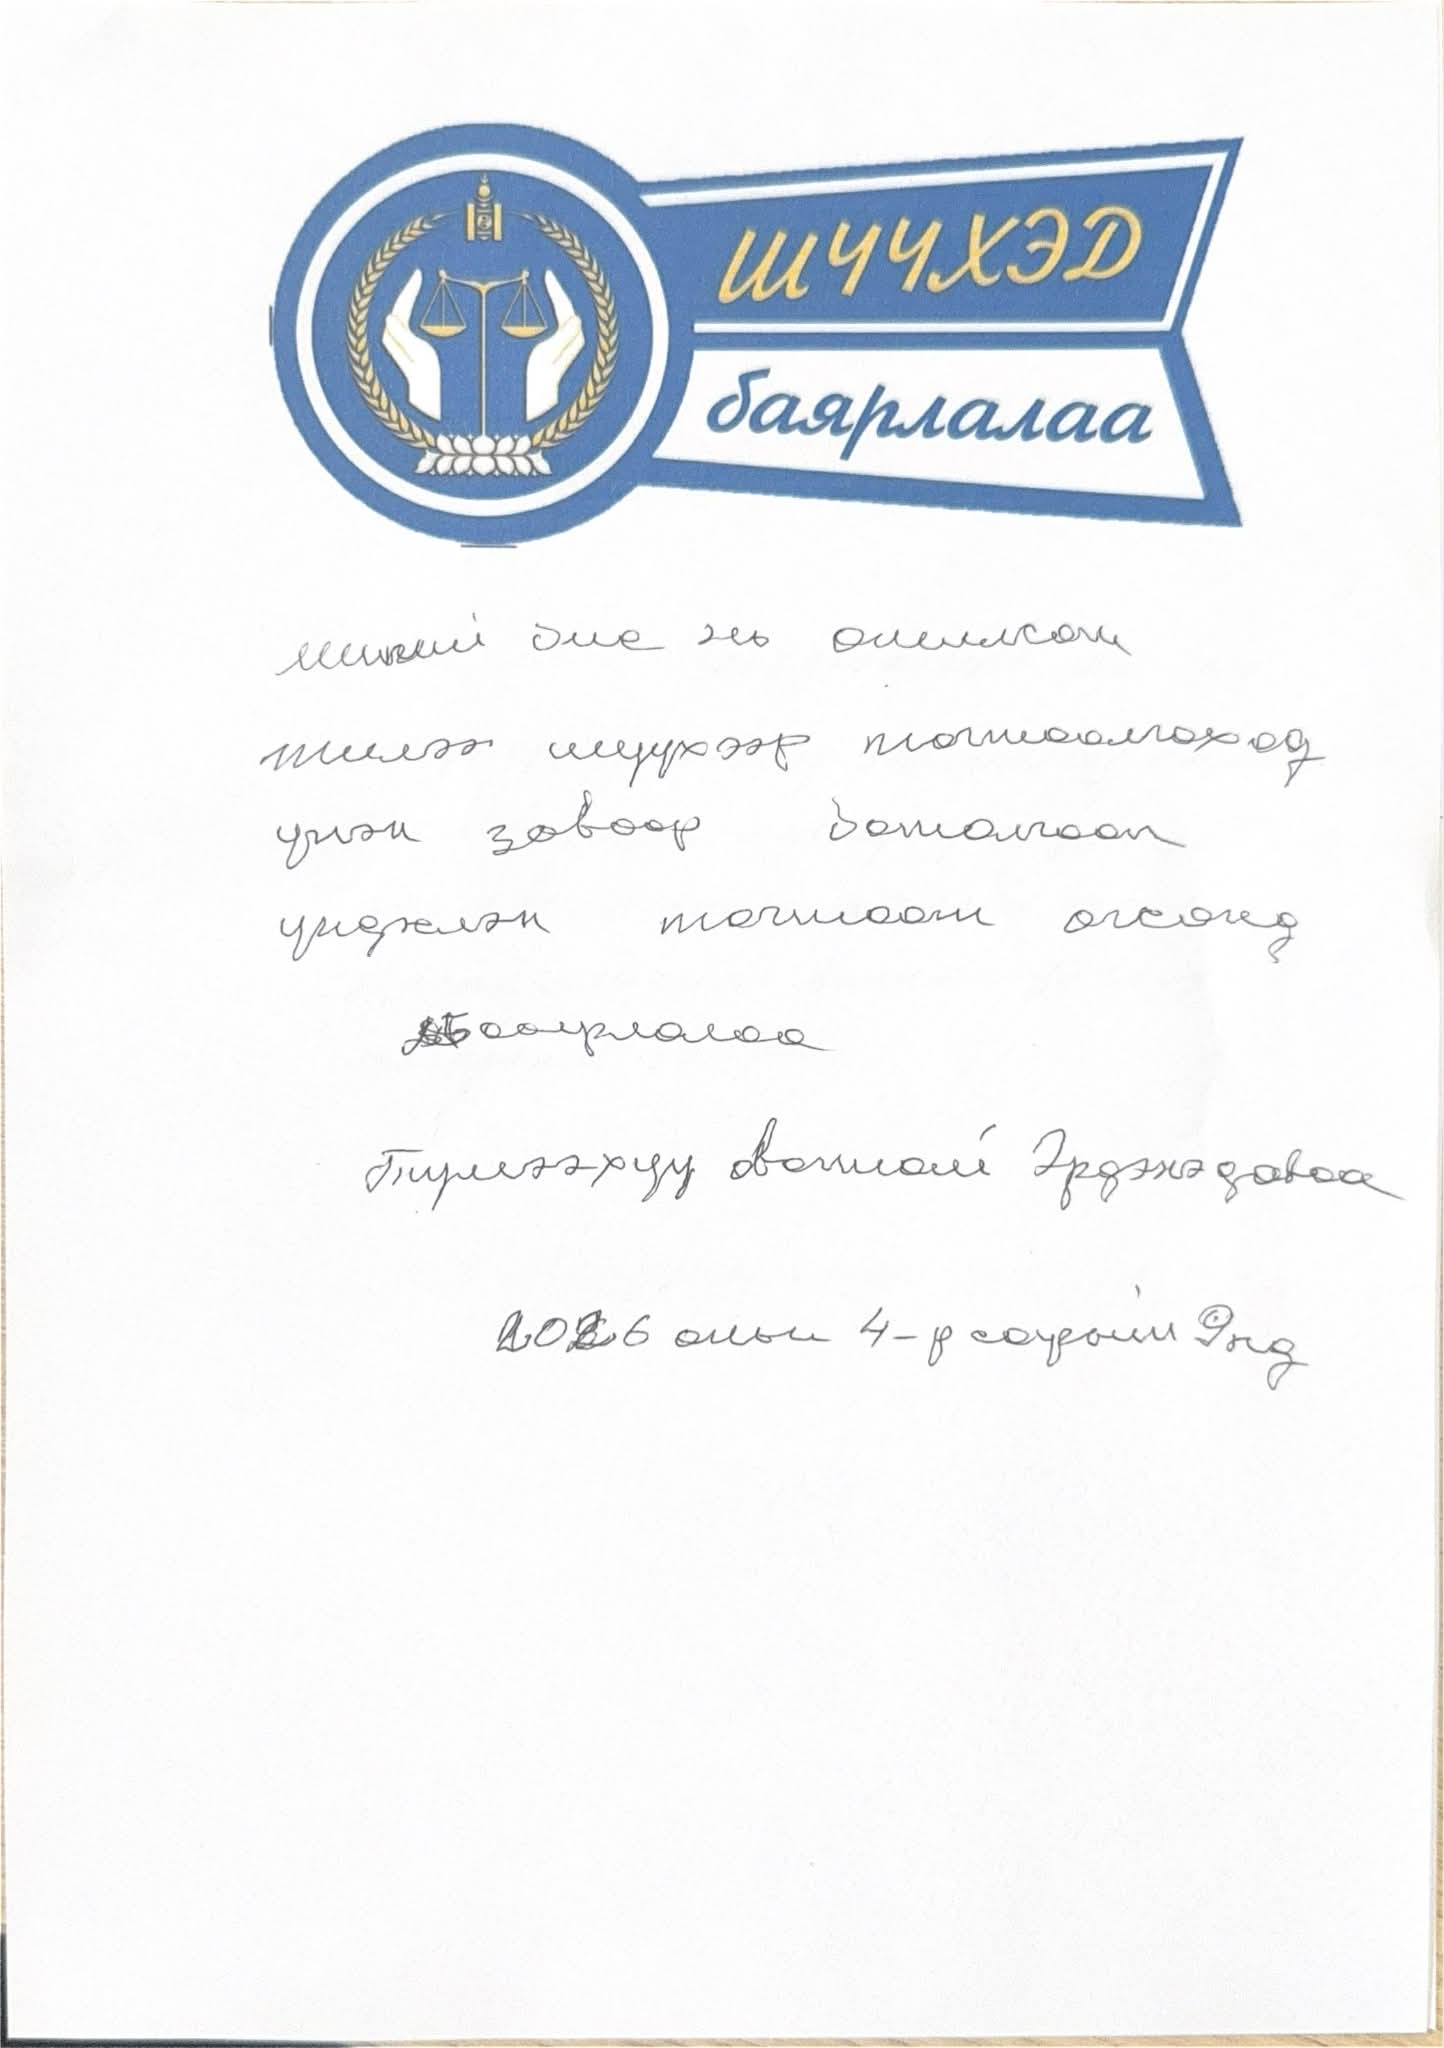 ШҮҮХЭД
баярлалаа
миний бие нь ажилсан
жилээ шүүхээр тогтоолгоход
үнэн зөвөөр баталгаат
үндэслэн тогтоож өгсөнд
Баярлалаа
Түлээхүү овогтой Эрдэнэдаваа
2026 оны 4-р сарын 9нд